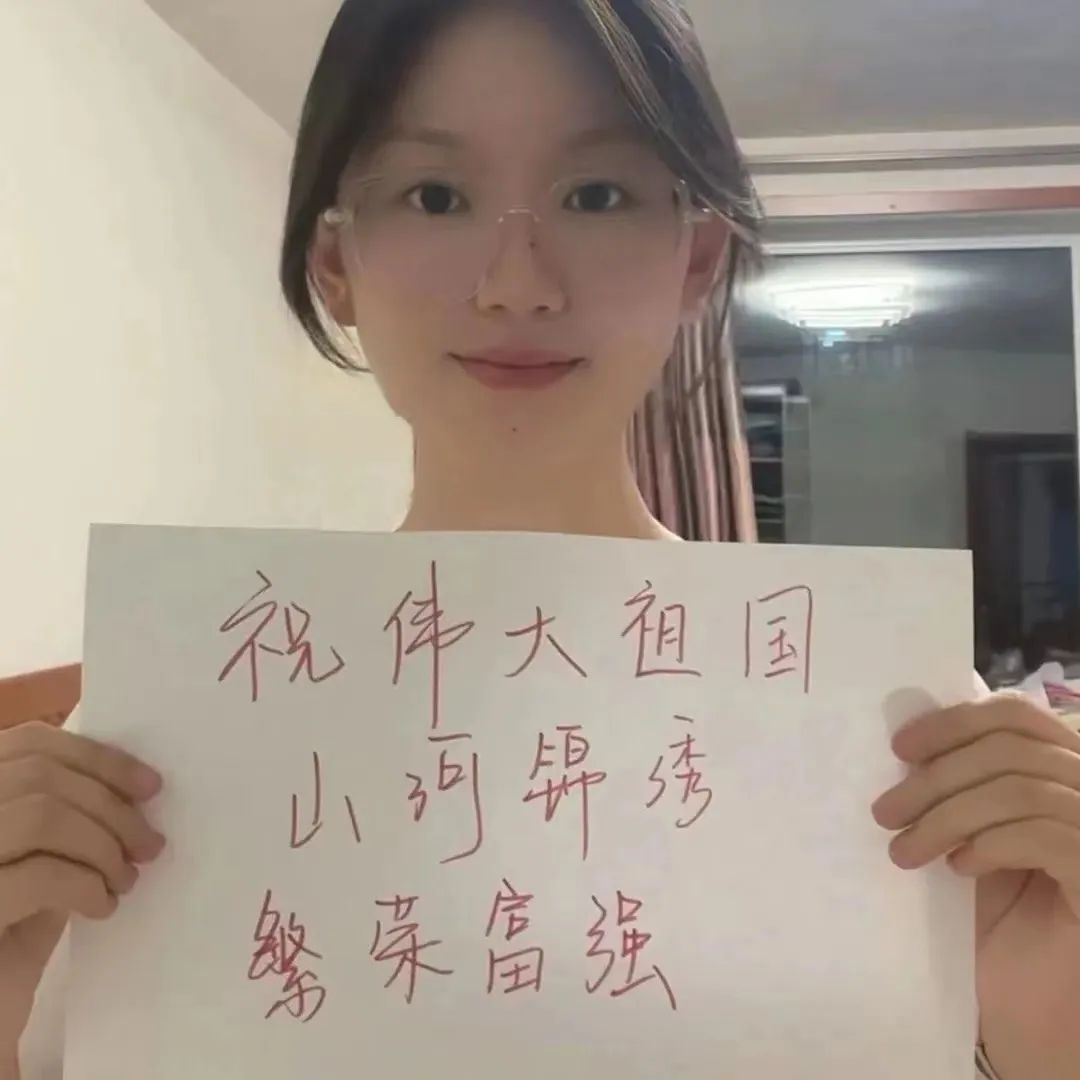 祝伟大祖国
山河锦绣
繁荣富强